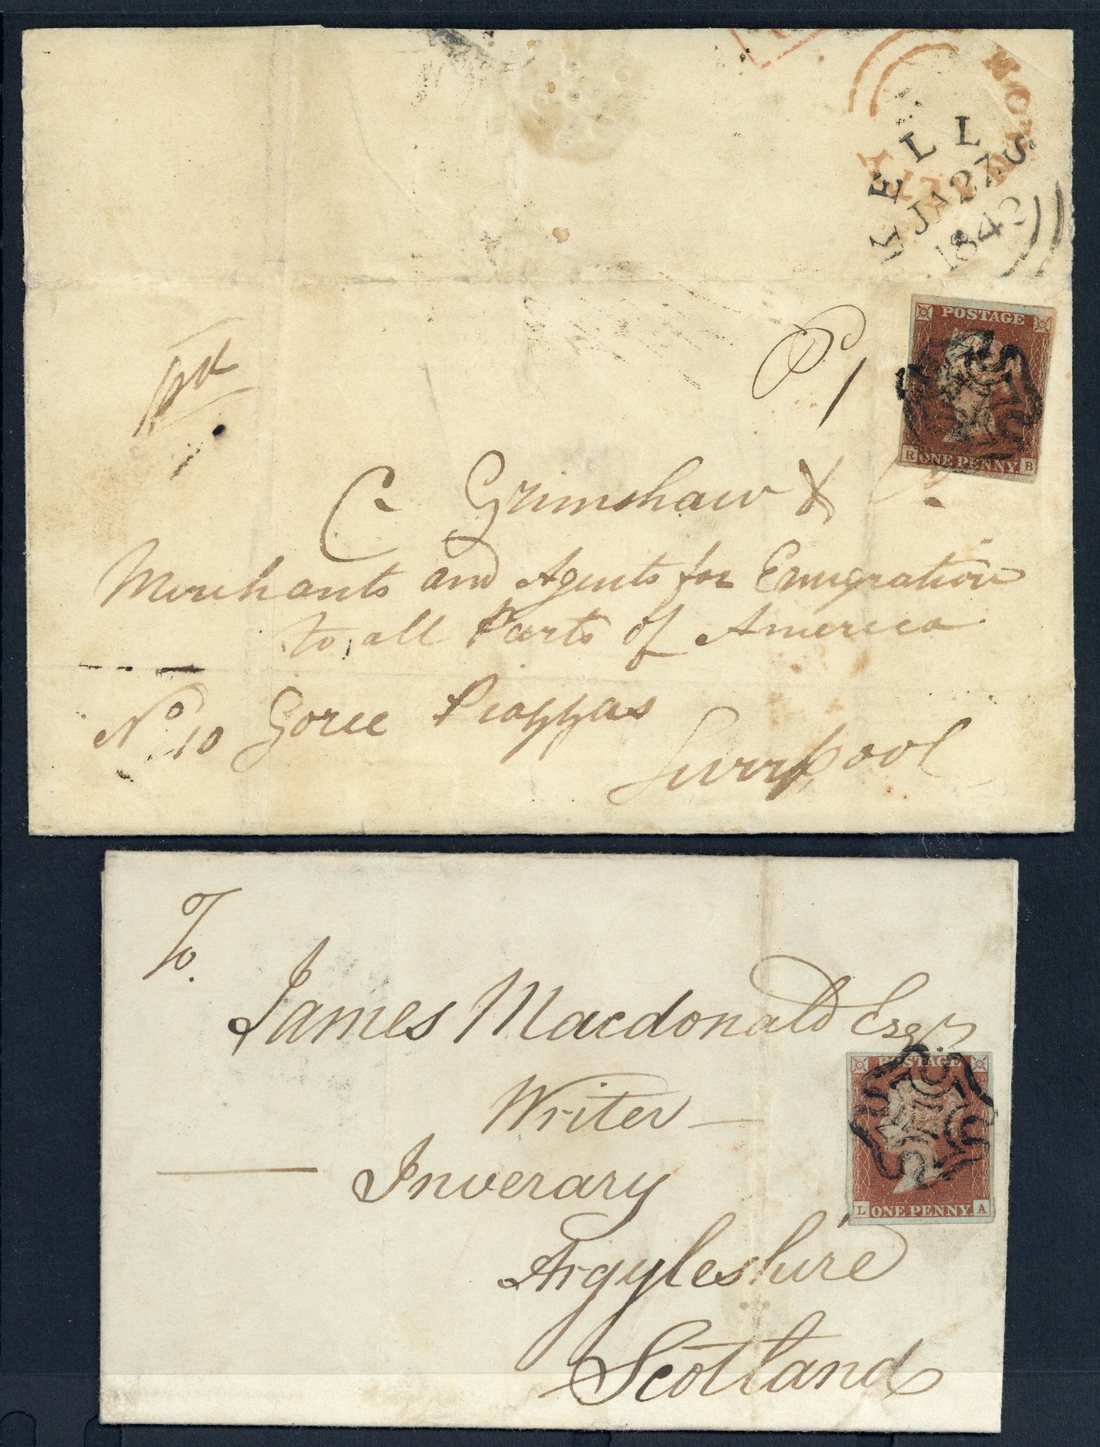 WELLS
JA 27
1842
POSTAGE
R ONE PENNY B
Pd
P 1
C Grimshaw &
Merchants and Agents for Emigration
to all Parts of America
No 10 Goree Piazzas
Liverpool
To
James Macdonald Esqr
Writer
Inverary
Argyleshire
Scotland
POSTAGE
L ONE PENNY A